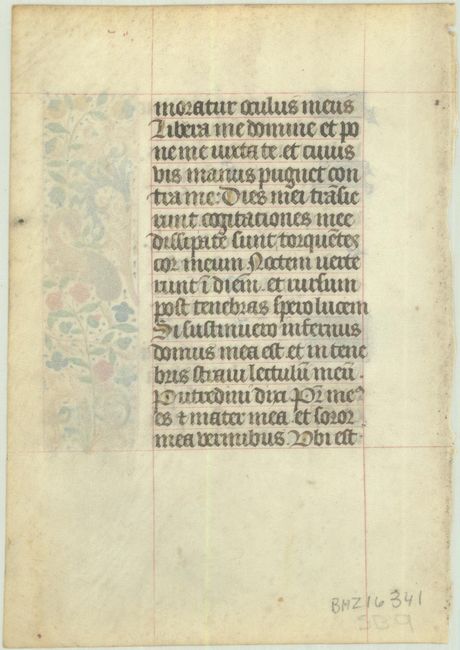 moratur oculus meus
Libera me domine et po
ne me iuxta te. et cuius
vis manus puguet con
tra me: Dies mei trāsie
runt cogitationes mee
dissipate sunt torquētes
cor meum Noctem verte
runt ī diem. et rursum
post tenebras spero lucem
Si sustinuero infernus
domus mea est et in tene
bris stravi lectulū meū.
Putredini dixi Pr̄ me⁹
es ⁊ mater mea. et soror
mea vermibus. Ubi est
BHZ16341